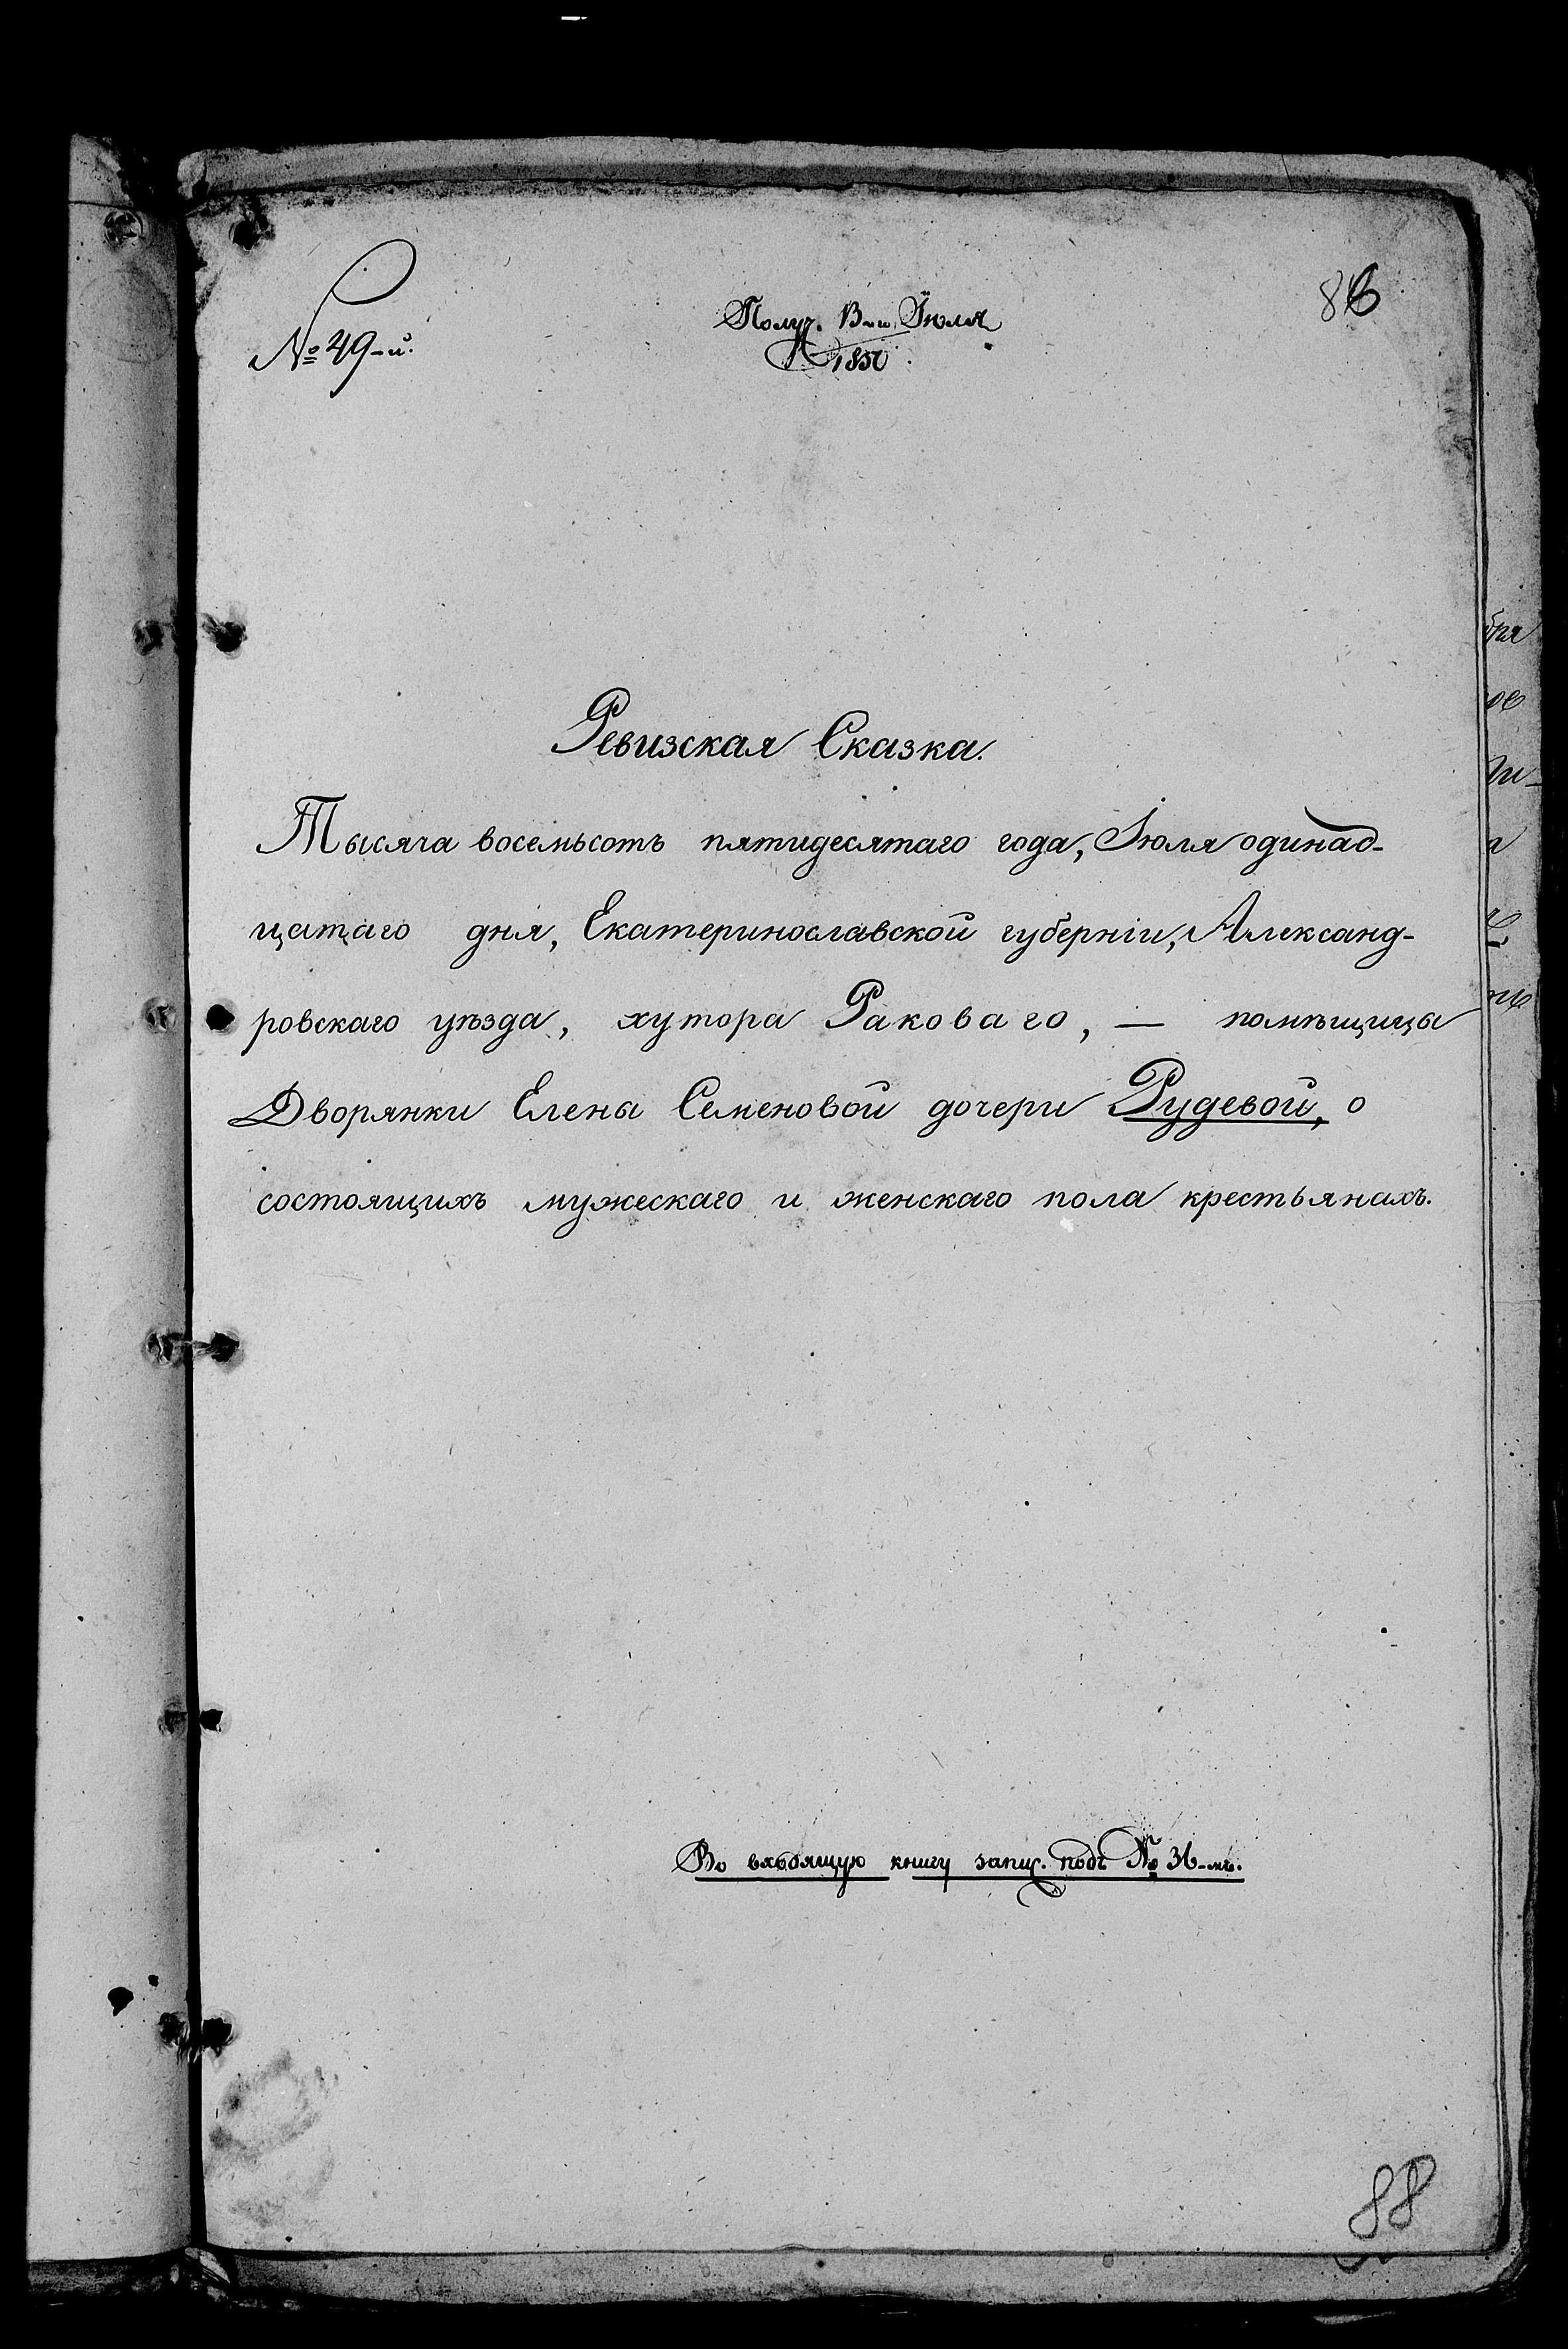 № 49-й.
Получ. Іюля
1850
8
Ревизская Сказка.
Тысяча восемьсотъ пятидесятаго года, Іюля одинад-
цатаго дня, Екатеринославской губерніи, Александ-
ровскаго уѣзда, хутора Раковаго, — помѣщицы
Дворянки Елены Семеновой дочери Рудевой, о
состоящихъ мужескаго и женскаго пола крестьянахъ.
Во входящую книгу запис. подъ № 36-мъ.
88